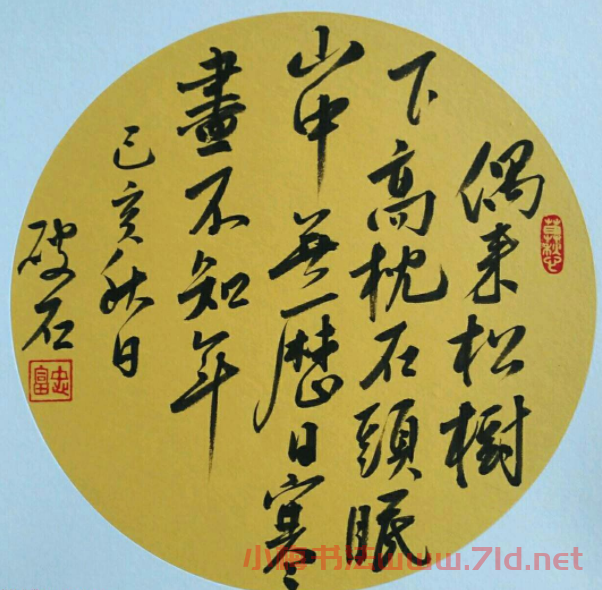 偶来松樹
下高枕石頭眠
山中無歷日寒
盡不知年
己亥秋日
破石
忠富
小楷书法www.7ld.net